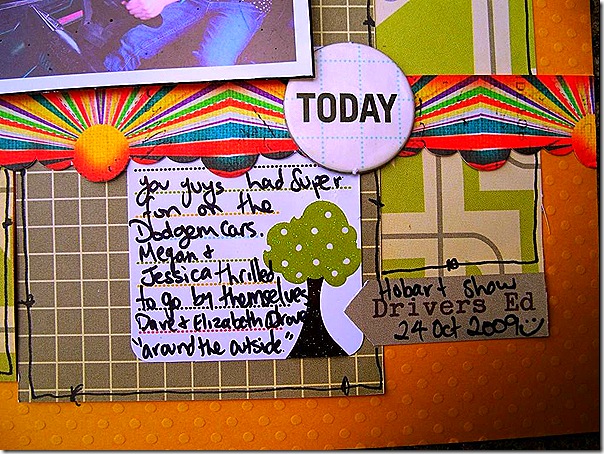 TODAY
you guys had super
fun on the
Dodgem cars.
Megan &
Jessica thrilled
to go by themselves
Dave & Elizabeth Drove
"around the outside"
Hobart Show
Drivers Ed
24 Oct 2009